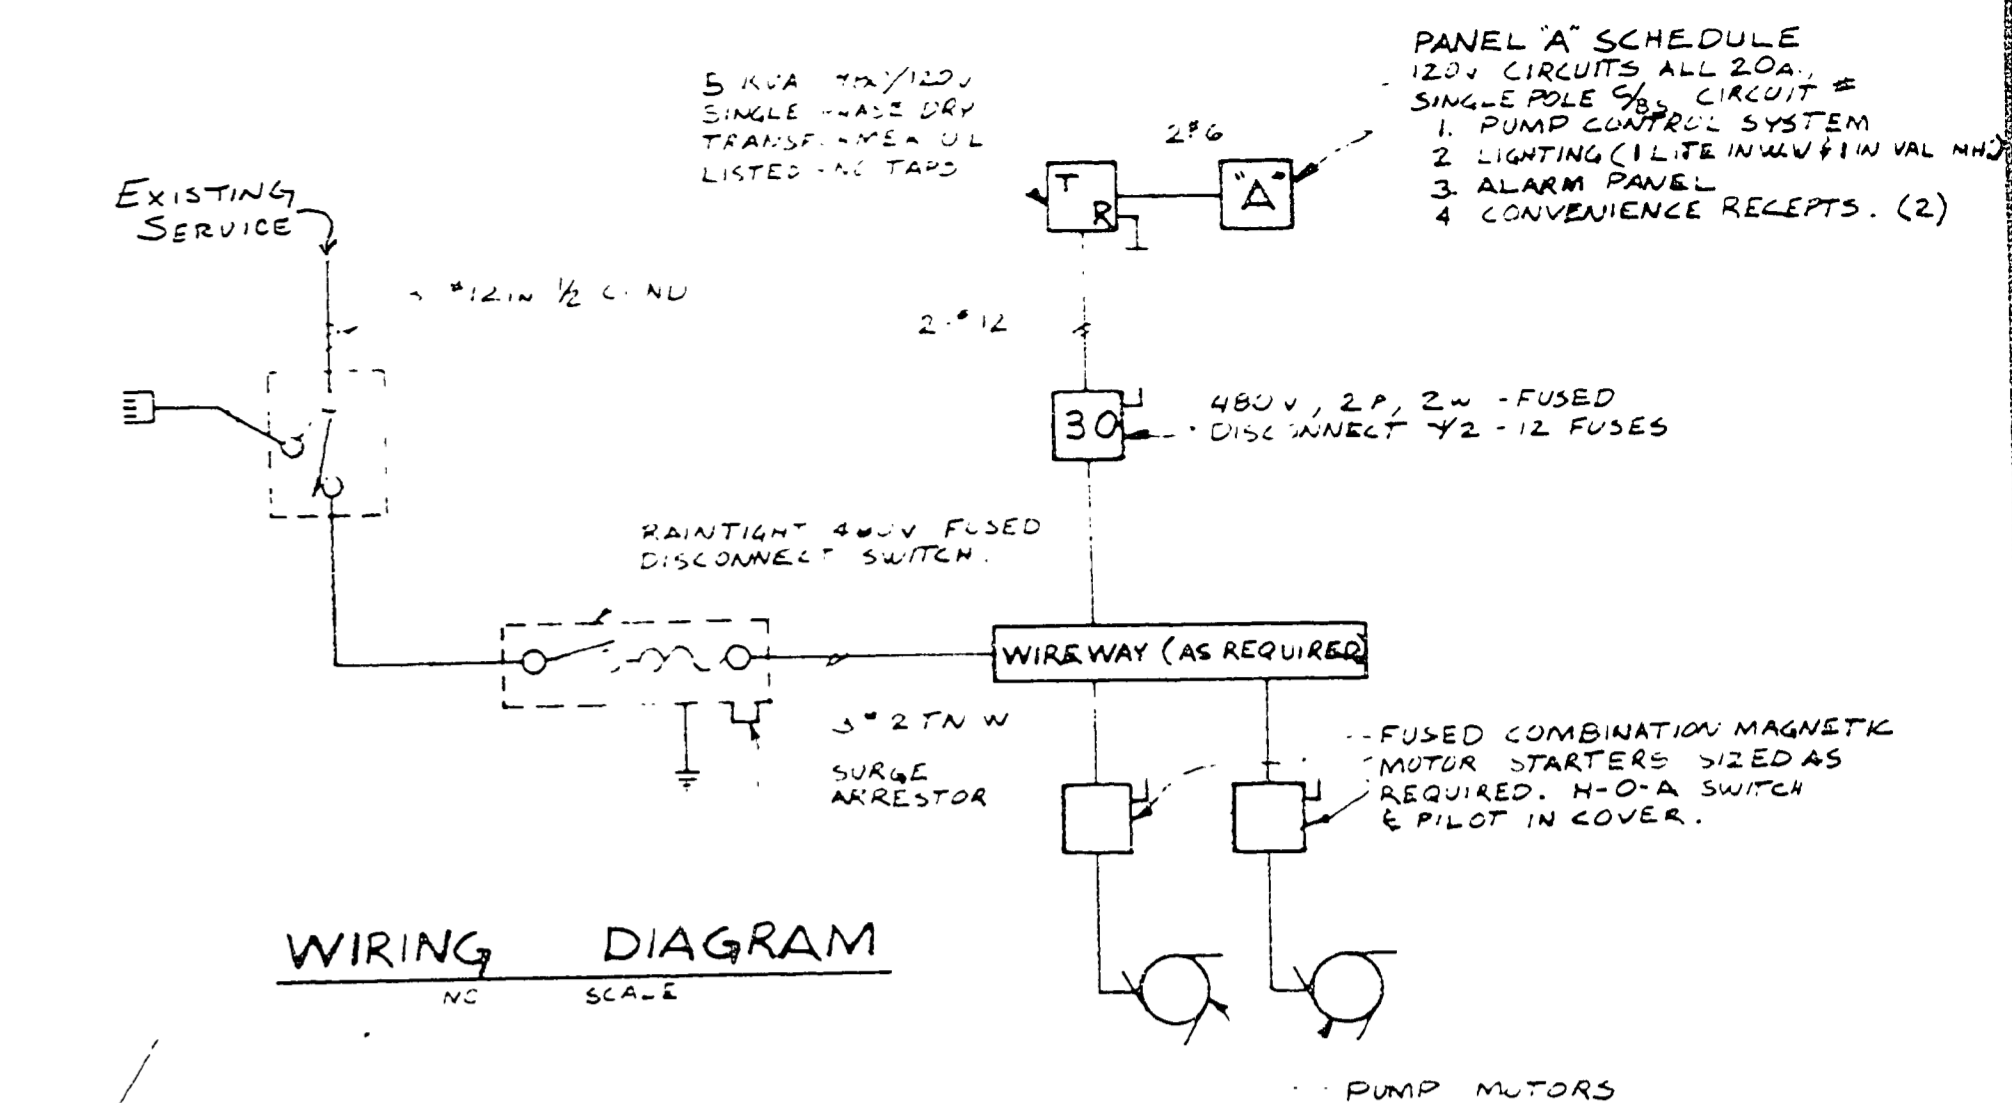 PANEL "A" SCHEDULE
120V CIRCUITS ALL 20A.,
SINGLE POLE C/Bs CIRCUIT #
1. PUMP CONTROL SYSTEM
2 LIGHTING (1 LITE IN W.W & 1 IN VAL MH.)
3. ALARM PANEL
4 CONVENIENCE RECEPTS. (2)
5 KVA /120V
SINGLE PHASE DRY
TRANSFORMER UL
LISTED - NO TAPS
2#6
T
R
"A"
EXISTING
SERVICE
#12 IN 1/2 COND
2-#12
30
480V, 2P, 2W - FUSED
DISCONNECT W/2 - 12 FUSES
RAINTIGHT 480V FUSED
DISCONNECT SWITCH.
WIREWAY (AS REQUIRED)
3#2 THW
SURGE
ARRESTOR
FUSED COMBINATION MAGNETIC
MOTOR STARTERS SIZED AS
REQUIRED. H-O-A SWITCH
& PILOT IN COVER.
WIRING DIAGRAM
NO SCALE
PUMP MOTORS